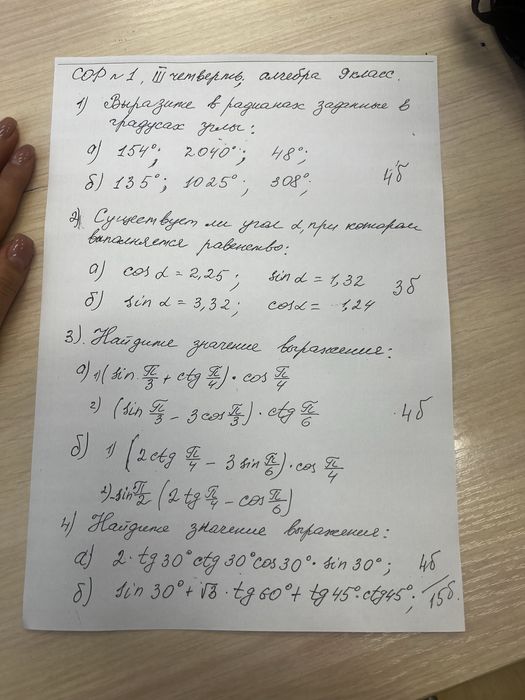 СОР №1, III четверть, алгебра 9 класс.
1) Выразите в радианах заданные в
градусах углы:
а) 154°; 2040°; 48°;
б) 135°; 1025°; 308°; 4б
2) Существует ли угол α, при котором
выполняется равенство:
а) cos α = 2,25; sin α = 1,32 3б
б) sin α = 3,32; cos α = 1,24
3). Найдите значение выражения:
а) 1) (sin π/3 + ctg π/4) · cos π/4
2) (sin π/3 - 3 cos π/3) · ctg π/6 4б
б) 1) (2 ctg π/4 - 3 sin π/6) · cos π/4
2) -sin π/2 (2 tg π/4 - cos π/6)
4) Найдите значение выражения:
а) 2 · tg 30° ctg 30° cos 30° · sin 30°; 4б
б) sin 30° + √3 · tg 60° + tg 45° · ctg 45°; /15б.